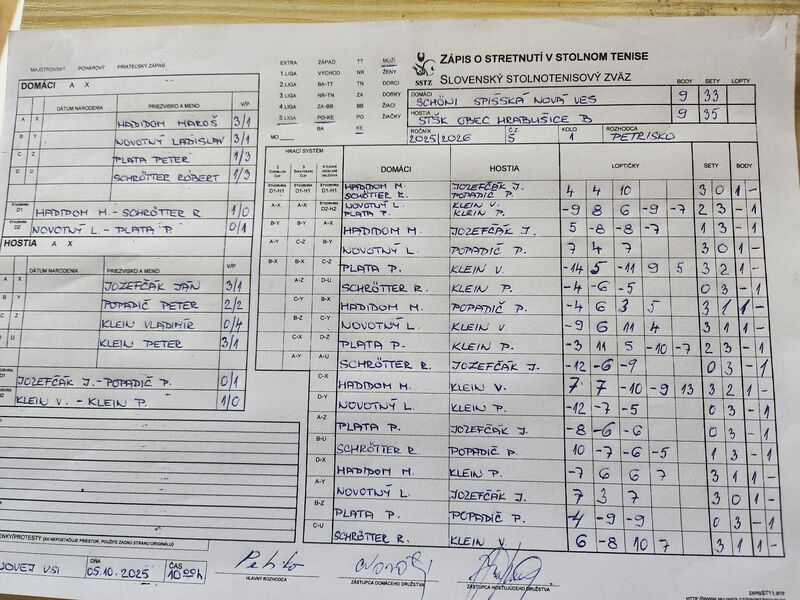 MAJSTROVSKÝ POHÁROVÝ PRIATEĽSKÝ ZÁPAS
EXTRA ZÁPAD TT MUŽI
1.LIGA VÝCHOD NR ŽENY
2.LIGA BA-TT TN DORCI
3.LIGA NR-TN ZA DORKY
4.LIGA ZA-BB BB ŽIACI
5.LIGA PO-KE PO ŽIAČKY
BA KE
MO
SSTZ
ZÁPIS O STRETNUTÍ V STOLNOM TENISE
SLOVENSKÝ STOLNOTENISOVÝ ZVÄZ
BODY SETY LOPTY
DOMÁCI SCHÖNI SPIŠSKÁ NOVÁ VES 9 33
HOSTIA STŠK OBEC HRABUŠICE B 9 35
ROČNÍK 2025/2026 Č.Z. 5 KOLO 1 ROZHODCA PETRISKO
DOMÁCI A X
DÁTUM NARODENIA PRIEZVISKO A MENO V/P
A X HADIDOM MAROŠ 3/1
B Y NOVOTNÝ LADISLAV 3/1
C Z PLATA PETER 1/3
D U SCHRÖTTER RÓBERT 1/3
D1 HADIDOM M. - SCHRÖTTER R. 1/0
ŠTVORHRA D2 NOVOTNÝ L. - PLATA P. 0/1
HOSTIA A X
DÁTUM NARODENIA PRIEZVISKO A MENO V/P
A X JOZEFČÁK JÁN 3/1
B Y POPADIČ PETER 2/2
C Z KLEIN VLADIMÍR 0/4
D U KLEIN PETER 3/1
D1 JOZEFČÁK J. - POPADIČ P. 0/1
D2 KLEIN V. - KLEIN P. 1/0
HRACÍ SYSTÉM DOMÁCI HOSTIA LOPTIČKY SETY BODY
ŠTVORHRA D1-H1 ŠTVORHRA D1-H1 ŠTVORHRA D1-H1 HADIDOM M. SCHRÖTTER R. JOZEFČÁK J. POPADIČ P. 4 4 10 3 0 1 -
A-X A-X ŠTVORHRA D2-H2 NOVOTNÝ L. PLATA P. KLEIN V. KLEIN P. -9 8 6 -9 -7 2 3 - 1
B-Y B-Y A-X HADIDOM M. JOZEFČÁK J. 5 -8 -8 -7 1 3 - 1
A-Y C-Z B-Y NOVOTNÝ L. POPADIČ P. 7 4 7 3 0 1 -
B-X B-X C-Z PLATA P. KLEIN V. -14 5 -11 9 5 3 2 1 -
A-Z D-U SCHRÖTTER R. KLEIN P. -4 -6 -5 0 3 - 1
C-Y B-X HADIDOM M. POPADIČ P. -4 6 3 5 3 1 1 -
B-Z C-Y NOVOTNÝ L. KLEIN V. -9 6 11 4 3 1 1 -
C-X PLATA P. KLEIN P. -3 11 5 -10 -7 2 3 - 1
A-Y A-U SCHRÖTTER R. JOZEFČÁK J. -12 -6 -9 0 3 - 1
C-X HADIDOM M. KLEIN V. 7 7 -10 -9 13 3 2 1 -
D-Y NOVOTNÝ L. KLEIN P. -12 -7 -5 0 3 - 1
A-Z PLATA P. JOZEFČÁK J. -8 -6 -6 0 3 - 1
B-U SCHRÖTTER R. POPADIČ P. 10 -7 -6 -5 1 3 - 1
D-X HADIDOM M. KLEIN P. -7 6 6 7 3 1 1 -
A-Y NOVOTNÝ L. JOZEFČÁK J. 7 3 7 3 0 1 -
B-Z PLATA P. POPADIČ P. -4 -9 -9 0 3 - 1
C-U SCHRÖTTER R. KLEIN V. 6 -8 10 7 3 1 1 -
ENKY/PROTESTY (AK NEPOSTAČUJE PRIESTOR, POUŽITE ZADNÚ STRANU ORIGINÁLU)
NOVEJ VSI DŇA 05.10.2025 ČAS 10 00 h
HLAVNÝ ROZHODCA ZÁSTUPCA DOMÁCEHO DRUŽSTVA ZÁSTUPCA HOSŤUJÚCEHO DRUŽSTVA